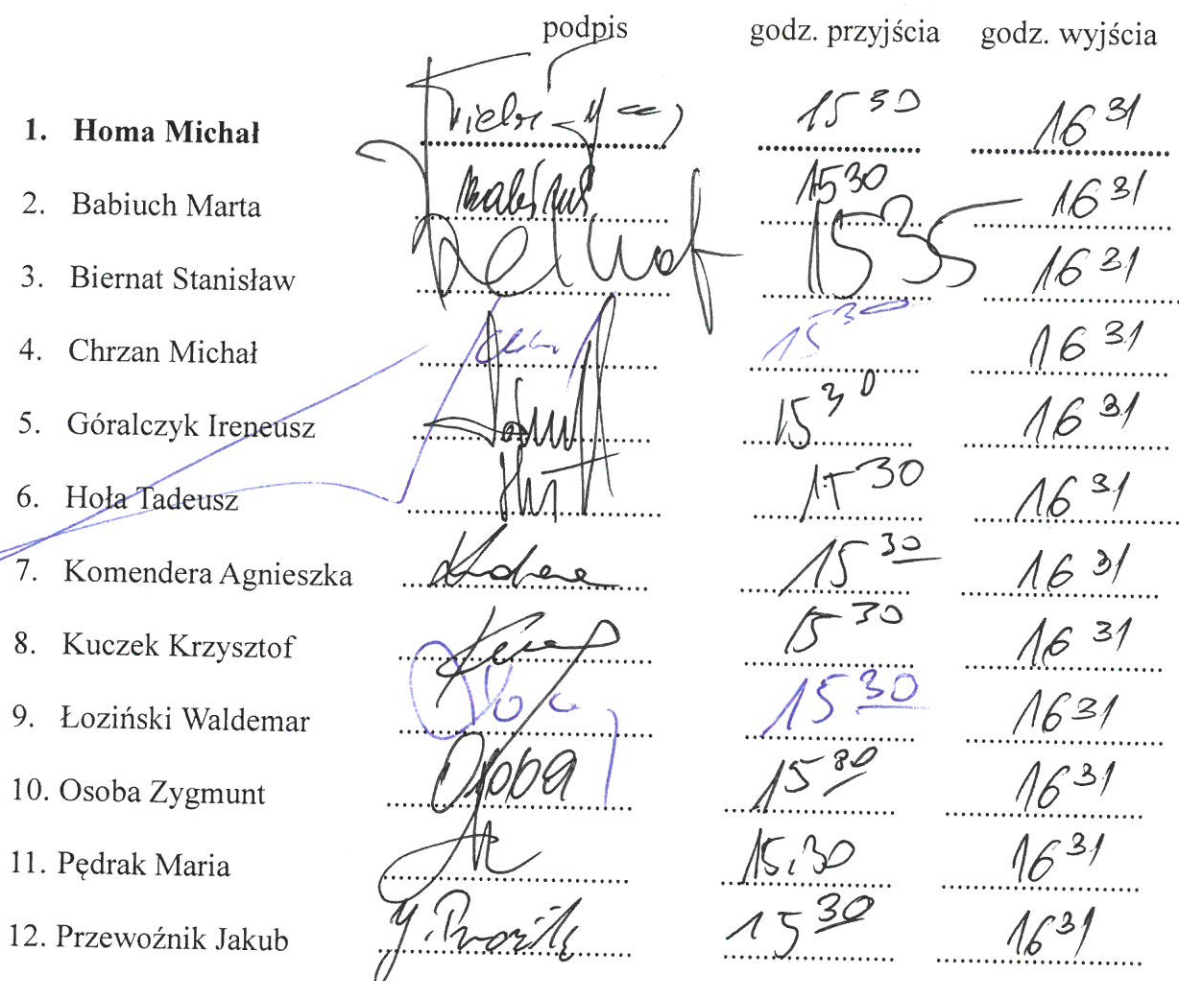 podpis godz. przyjścia godz. wyjścia
1. Homa Michał 15 30 16 31
2. Babiuch Marta 15 30 16 31
3. Biernat Stanisław 15 35 16 31
4. Chrzan Michał 15 30 16 31
5. Góralczyk Ireneusz 15 30 16 31
6. Hoła Tadeusz 15 30 16 31
7. Komendera Agnieszka 15 30 16 31
8. Kuczek Krzysztof 15 30 16 31
9. Łoziński Waldemar 15 30 16 31
10. Osoba Zygmunt Osoba 15 30 16 31
11. Pędrak Maria 15.30 16 31
12. Przewoźnik Jakub 15 30 16 31